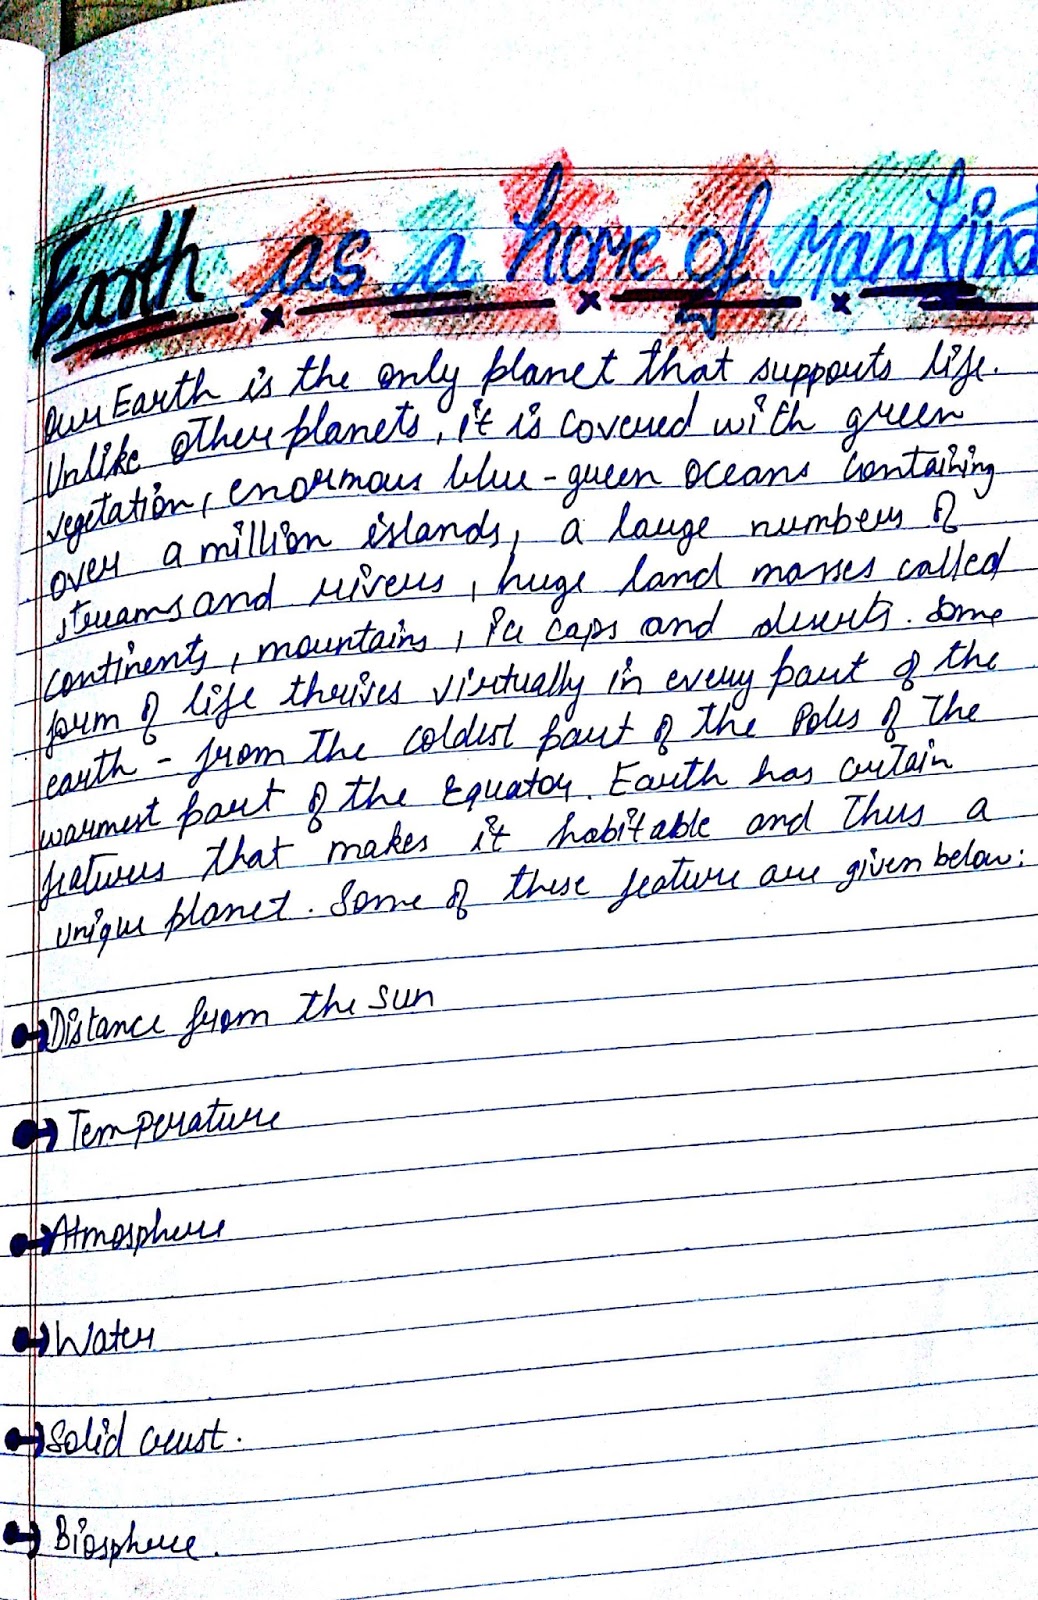 Earth as a home of Mankind
Our Earth is the only planet that supports life.
Unlike other planets, it is covered with green
vegetation, enormous blue-green oceans containing
over a million islands, a large numbers of
streams and rivers, huge land masses called
continents, mountains, ice caps and deserts. Some
form of life thrives virtually in every part of the
earth - from the coldest part of the Poles of the
warmest part of the Equator. Earth has certain
features that makes it habitable and thus a
unique planet. Some of these feature are given below:
Distance from the sun
Temperature
Atmosphere
Water
Solid crust.
Biosphere.